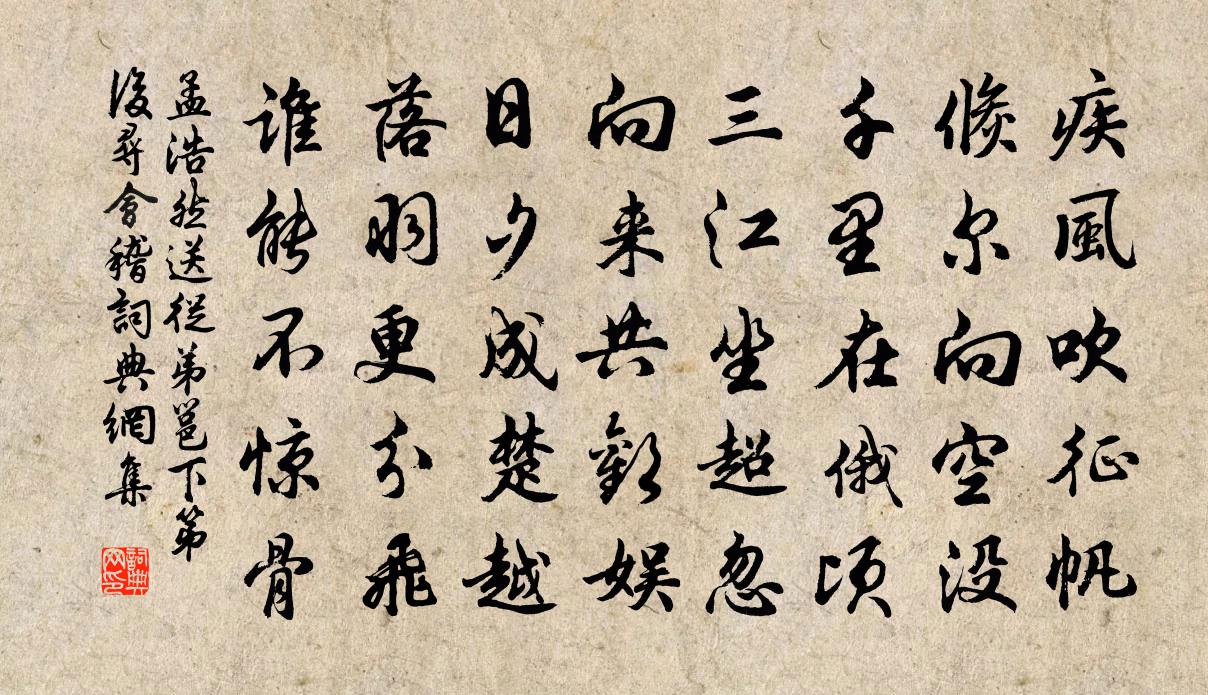 疾風吹征帆
倏尔向空没
千里在俄顷
三江坐超忽
向来共歡娱
日夕成楚越
落羽更分飛
谁能不惊骨
孟浩然送從弟邕下第
後尋會稽詞典網集
詞典
网印